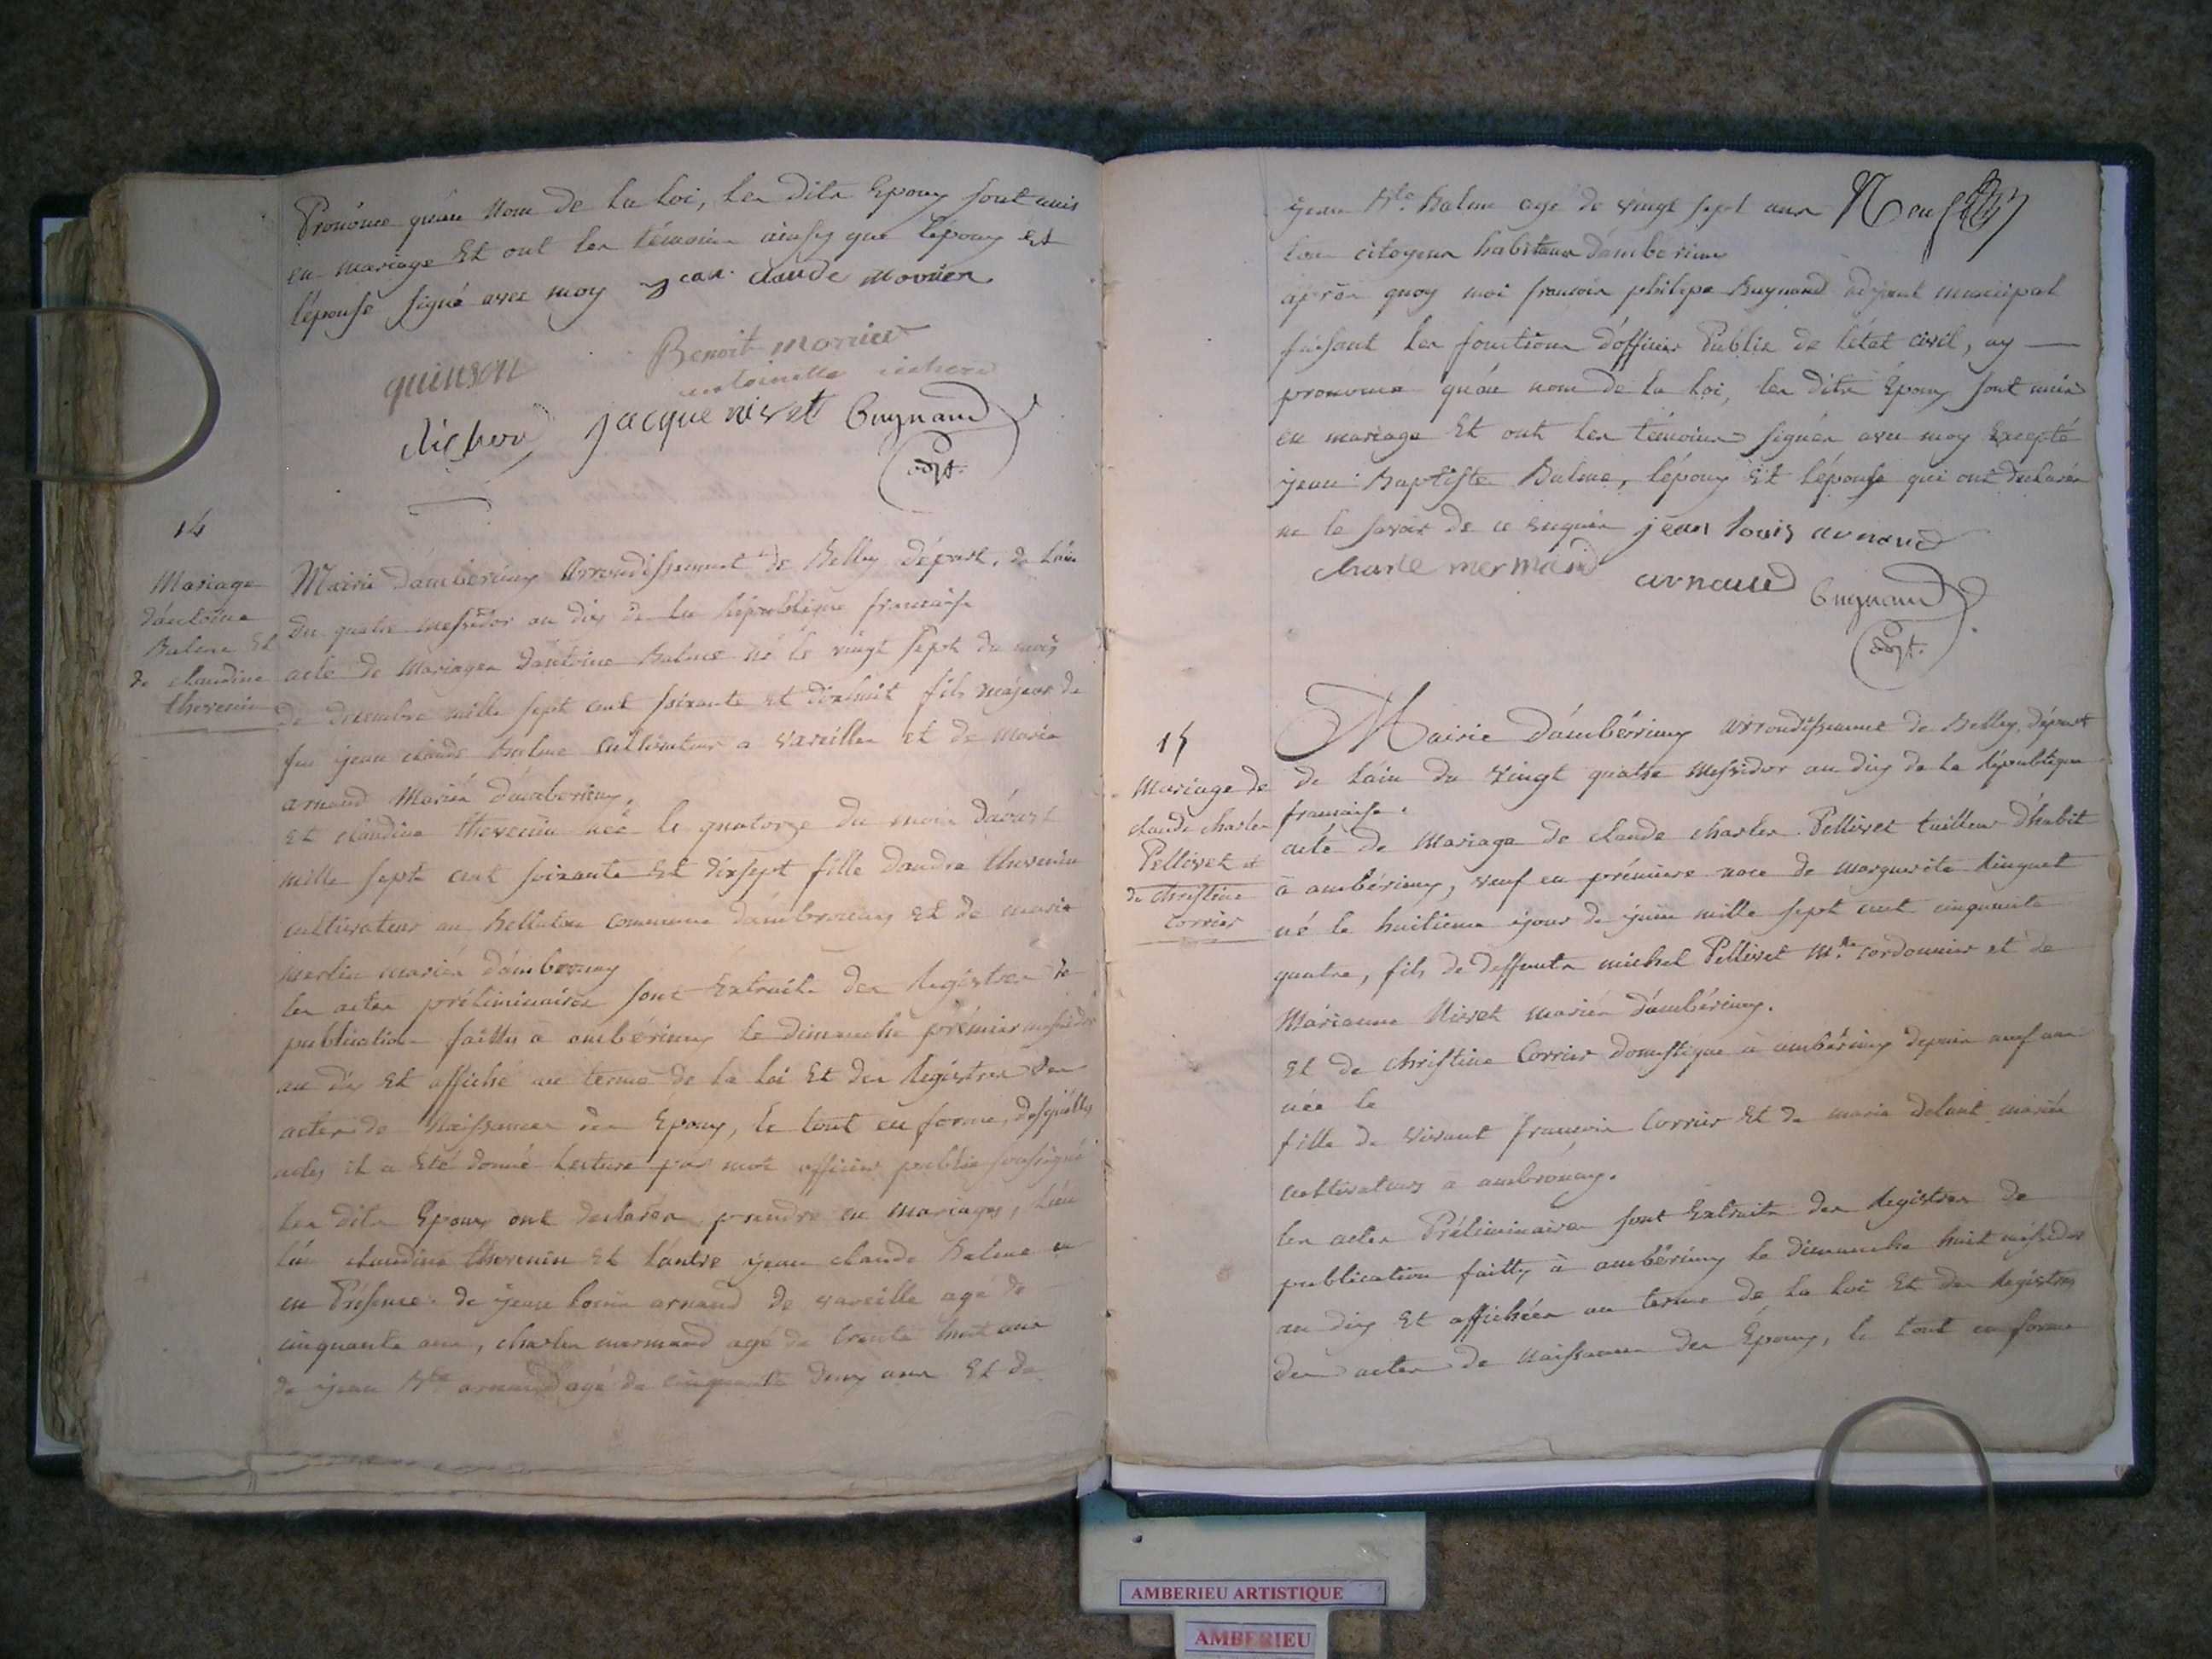 Pronónce qu'au Nom de la Loi, les dits Epoux sont unis
en mariage Et ont les témoins ainsy que l'epoux Et
l'épouse signé avec moy jean claude movrier
Benoit morrier
quinson
antoinette
jacque nivet Buynand
adjt.
14
Mariage
d'antoine
Balme Et
de claudine
thevenin
Mairie d'ambérieux Arrondissement de Belley départ. de l'ain
du quatre messidor an dix de la République francaise
acte de Mariages d'antoine Balme né le vingt sept du mois
de decembre mille sept cent soixante et dixhuit fils majeur de
feu jean claude Balme cultivateur a vareilles et de Marie
arnaud Mariés d'amberieux,
Et claudine thevenin née le quatorze du mois d'aoust
mille sept cent soixante Et dixsept fille d'andré thevenin
cultivateur au commune d'ambronay et de marie
merlin mariés d'ambronay
les actes préliminaires sont Extraits des Registres de
publication faittes à ambérieux le dimanche prémier messidor
an dix Et affiché au terme de la Loi Et des Registres des
actes de Naissances des Époux, le tout en forme, desquelles
actes il a Eté donné Lecture par moi officier public soussigné
les dits Epoux ont declarés prendre en mariages, l'un
claudine thevenin Et l'autre jean claude Balme en
en Présence de jean Louis arnaud de vareille agé de
cinquante ans, charles mermand agé de trente huit ans
de jean Bte arnaud agé de cinquante deux ans Et de
jean Bte. Balme agé de vingt sept ans
tous citoyens habitans d'amberieux
après quoy moi francois philipe Buynand adjoint municipal
faisant les fonctions d'officier Public de l'état civil, ay —
prononcé qu'au nom de la Loi, les dits Époux sont unis
en mariage Et ont les témoins signés avec moy Excepté
jean Baptiste Balme, l'époux Et l'épouse qui ont declarés
ne le savoir de ce enquis jean louis arnaud
charle mermand arnaud Buynand
adjt.
15
Mariage de
claude charles
Pellivet et
de christine
Corrier
Mairie d'ambérieux arrondissement de Belley, départ
de l'ain du vingt quatre Messidor an dix de la République
francaise.
acte de Mariage de claude charles Pellivet tailleur d'habit
à ambérieux, veuf en prémiere noce de marguerite Ringuet
né le huitieme jour de juin mille sept cent cinquante
quatre, fils de deffunts michel Pellivet Mtre cordonnier et de
Marianne Nivet mariés d'ambérieux.
Et de christine Corrier domestique à ambérieux depuis neuf ans
née le
fille de vivant françois Corrier Et de marie delant mariés
cultivateurs a ambronay.
les actes Préliminaires sont Extraits des Registres de
publication faitty à ambérieux le dimanche huit messidor
an dix Et affichées au terme de la Loi Et des Registres
des actes de Naissances des Epoux, le tout en forme
AMBERIEU ARTISTIQUE
AMBERIEU